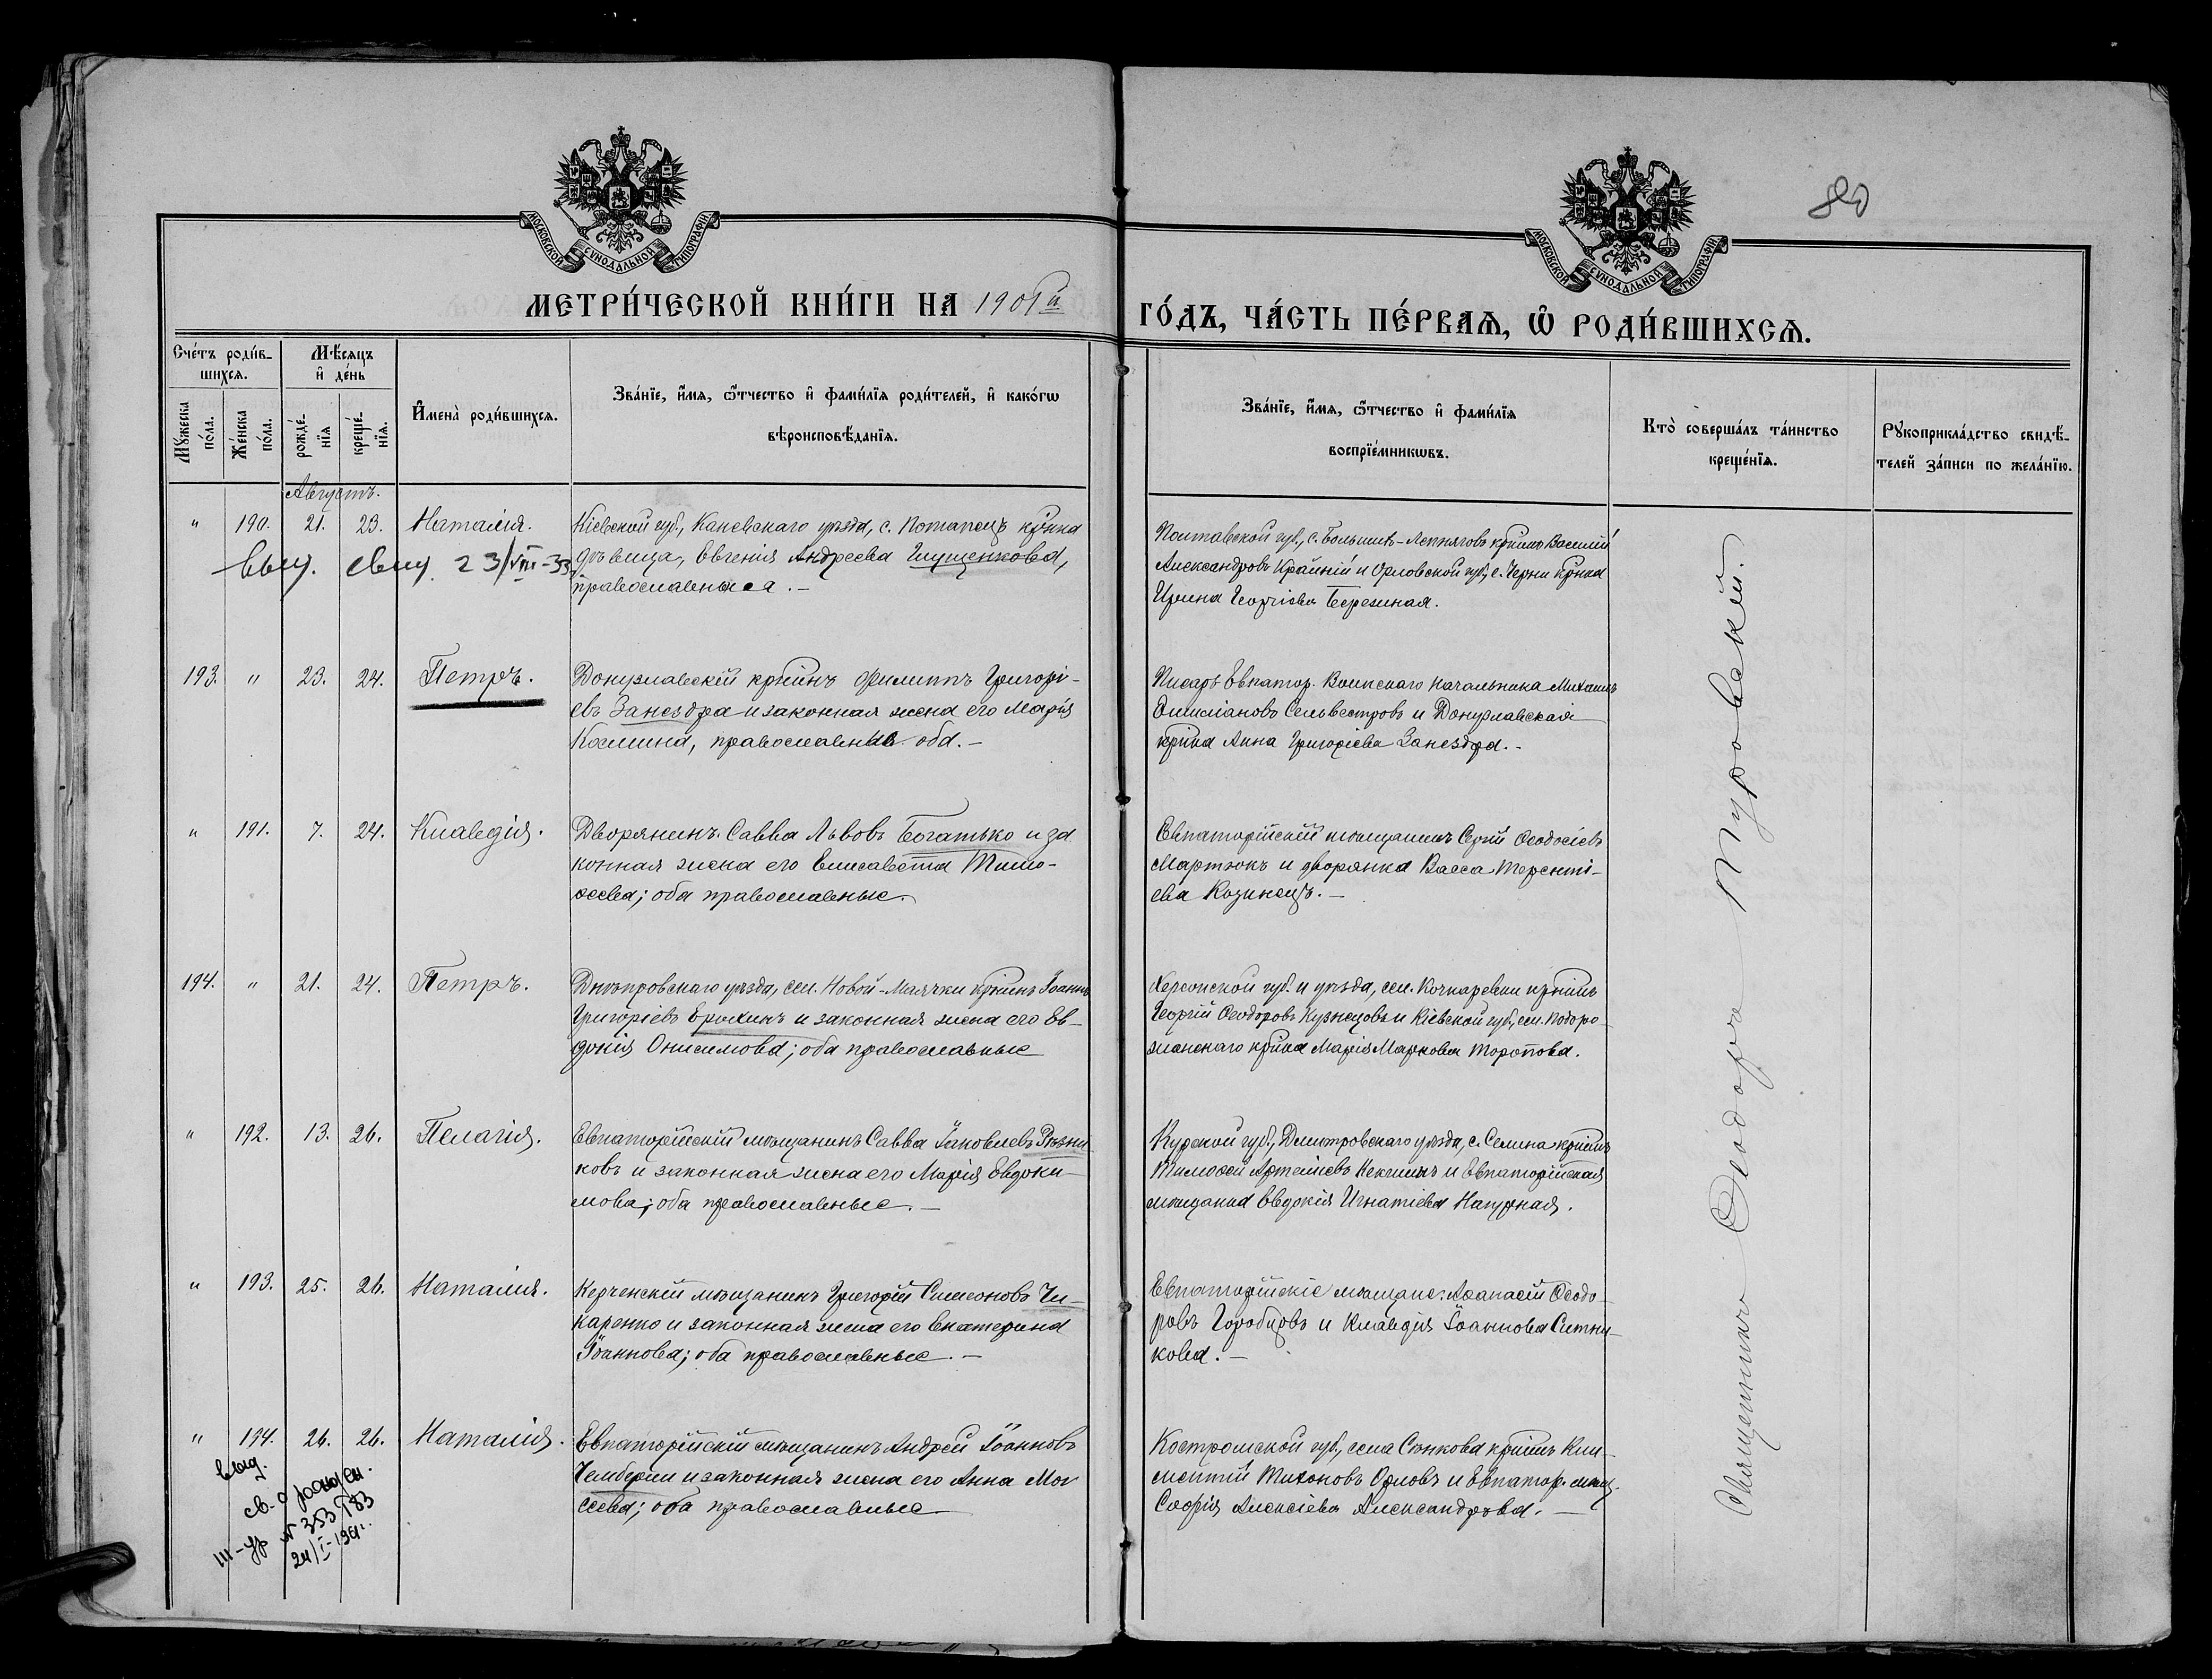 80
МОСКОВСКОЙ СѴНОДАЛЬНОЙ ТИПОГРАФІИ
МОСКОВСКОЙ СѴНОДАЛЬНОЙ ТИПОГРАФІИ
МЕТРИ́ЧЕСКОЙ КНИ́ГИ НА 1901й ГО́ДЪ, ЧА́СТЬ ПЕ́РВАѦ, Ѽ РОДИ́ВШИХСѦ.
Сче́тъ роди́в-
шихсѧ.
Мѣ́сяцъ
и҆ де́нь
И҆мена̀ роди́вшихсѧ.
Зва́нїе, и҆́мѧ, ѻ҆́тчество и҆ фами́лїѧ роди́телей, и҆ како́гѡ
вѣроисповѣ́данїѧ.
Зва́нїе, и҆́мѧ, ѻ҆́тчество и҆ фами́лїѧ
воспрїе́мникѡвъ.
Кто̀ соверша́лъ та́инство
креще́нїѧ.
Рꙋкоприкла́дство свидѣ́-
телей за́писи по жела́нїю.
Мꙋ́жеска
по́ла.
Же́нска
по́ла.
рожде́-
нїѧ
креще́-
нїѧ.
Августъ.
" 190. 21. 23. Наталія.
Кіевской губ., Каневскаго уѣзда, с. Потапецъ кр-нка
дѣвица, Евгенія Андреева Глущенкова,
православная. —
Полтавской губ., с. Большихъ-Липняговъ кр-нинъ Василій
Александровъ Крайній и Орловской губ. с. Черни кр-нка
Ирина Георгіева Березиная.
выд. свид. 23/VIII-33
193. " 23. 24. Петръ.
Донузлавскій кр-нинъ Филиппъ Григорі-
евъ Занездра и законная жена его Марія
Космина, православные оба. —
Писарь Евпатор. Воинскаго Начальника Михаилъ
Сельвестровъ и Донузлавская
кр-нка Анна Григоріева Занездра. -
" 191. 7. 24. Клавдія.
Дворянинъ Савва Львовъ Богатько и за
конная жена его Елисавета Тимо-
ѳеева; оба православные.
Евпаторійскій мѣщанинъ Сергій Ѳеодосіевъ
Мартюкъ и дворянка Васса Терентi-
ева Козинецъ. —
194. " 21. 24. Петръ.
Днѣпровскаго уѣзда, сел. Новой-Маячки кр-нинъ Іоаннъ
Григоріевъ Ерохинъ и законная жена его Ев-
докія Онисимова; оба православные
Херсонской губ. и уѣзда, сел. Кочкаревки кр-нинъ
Георгій Ѳеодоровъ Кузнецовъ и Кіевской губ., сел. Подоро-
жнянскаго кр-нка Марія Маркова Торопова.
" 192. 13. 26. Пелагія.
Евпаторійскій мѣщанинъ Савва Іаковлевъ Рѣзни
ковъ и законная жена его Марія Евдоки-
мова; оба православные. —
Курской губ., Дмитровскаго уѣзда, с. Селина кр-нинъ
Тимоѳей Артеміевъ и Евпаторійская
мѣщанка Евдокія Игнатіева Нагурная.
" 193. 25. 26. Наталія.
Керченскій мѣщанинъ Григорій Симеоновъ Чи-
каренко и законная жена его Екатерина
Іоаннова; оба православные. —
Евпаторійскіе мѣщане: Аѳанасій Ѳеодо-
ровъ Горобцовъ и Клавдія Іоаннова Ситни-
кова. —
" 194. 26. 26. Наталія.
Евпаторійскій мѣщанинъ Андрей Іоанновъ
Чемберли и законная жена его Анна Мои
сеева; оба православные
Костромской губ., села Сѣнкова кр-нинъ Кли-
ментій Тихоновъ Орловъ и Евпатор. мѣщ.
Софія Алексіева Александрова. —
выд.
св. о рожден.
III-ур № 353783
24/I-19
Священникъ Ѳеодоръ Туровскій.